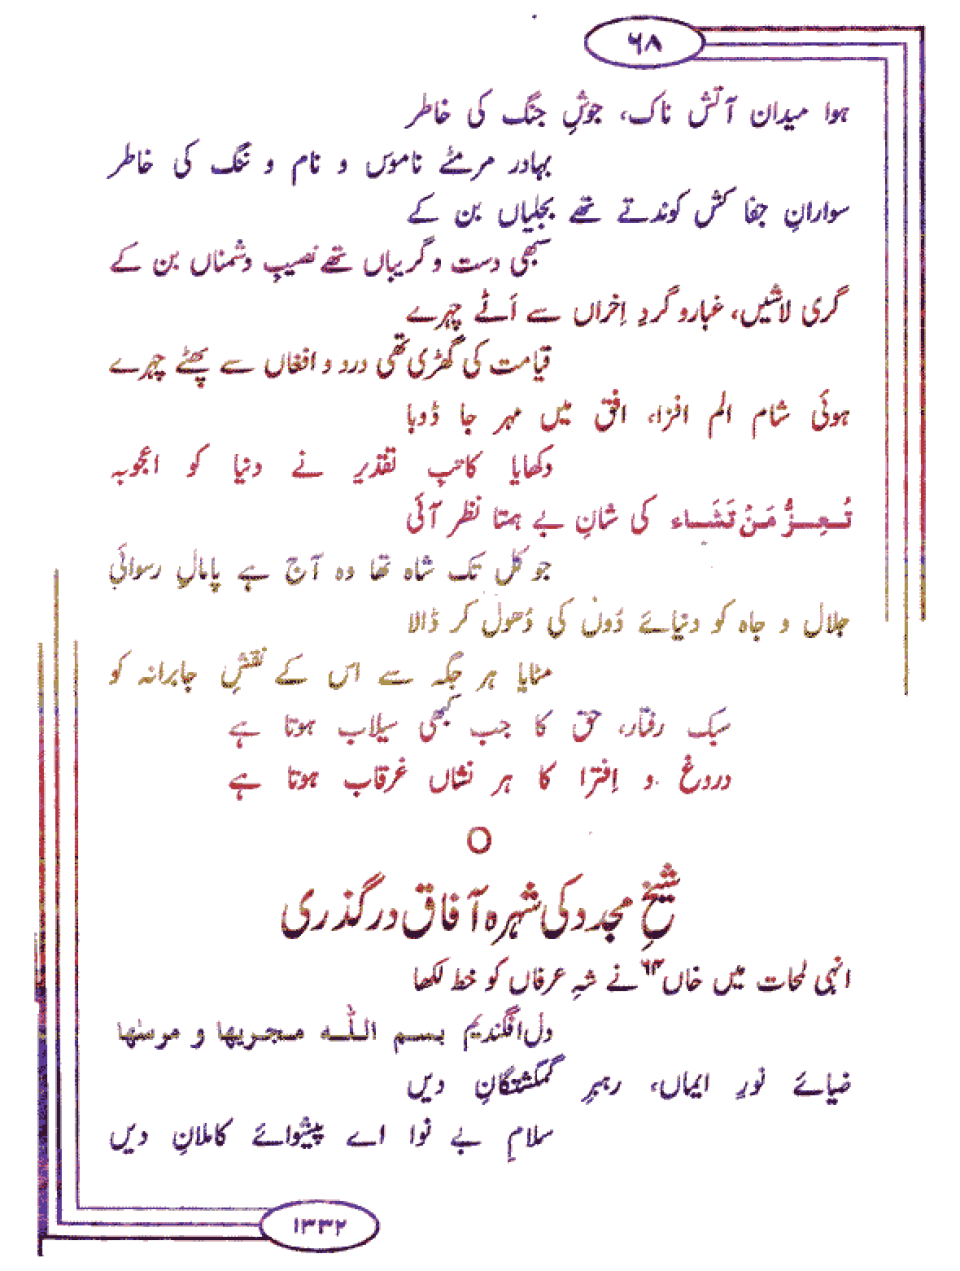 ۶۸
ہوا میدان آتش ناک، جوشِ جنگ کی خاطر
بہادر مرمٹے ناموس و نام و ننگ کی خاطر
سوارانِ جفا کش کوندتے تھے بجلیاں بن کے
سبھی دست و گریباں تھے نصیبِ دشمناں بن کے
گری لاشیں، غبار و گردِ اِخراں سے اَٹے چہرے
قیامت کی گھڑی تھی درد و افغاں سے پھٹے چہرے
ہوئی شام الم افزا، افق میں مہر جا ڈوبا
دکھایا کاتبِ تقدیر نے دنیا کو اعجوبہ
تُعِزُّ مَنْ تَشَاء کی شانِ بے ہمتا نظر آئی
جو کل تک شاہ تھا وہ آج ہے پامالِ رسوائی
جلال و جاہ کو دنیائے دُوں کی دُھول کر ڈالا
مٹایا ہر جگہ سے اس کے نقشِ جابرانہ کو
سبک رفتار، حق کا جب کبھی سیلاب ہوتا ہے
دروغ و اِفترا کا ہر نشاں غرقاب ہوتا ہے
O
شیخِ مجدد کی شہرہ آفاق درگذری
انہی لمحات میں خاں۶۴ نے شہِ عرفاں کو خط لکھا
دل افگندیم بسم اللہ مجریھا و مرسٰھا
ضیائے نورِ ایماں، رہبرِ گمگشتگانِ دیں
سلامِ بے نوا اے پیشوائے کاملانِ دیں
۱۳۳۲